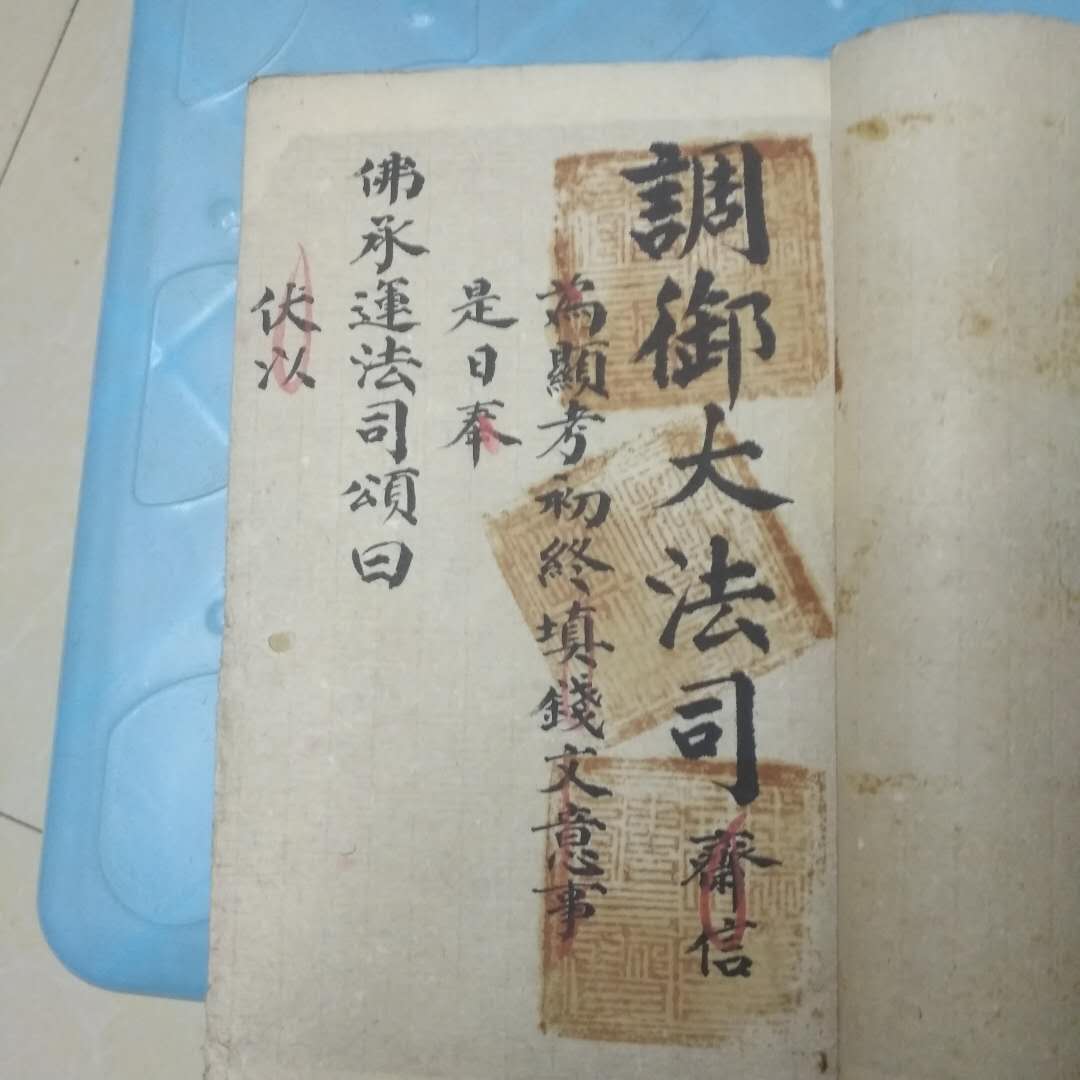 調御大法司 齋信
為顯考初終填錢文意事
是日奉
佛承運法司頌曰
伏以